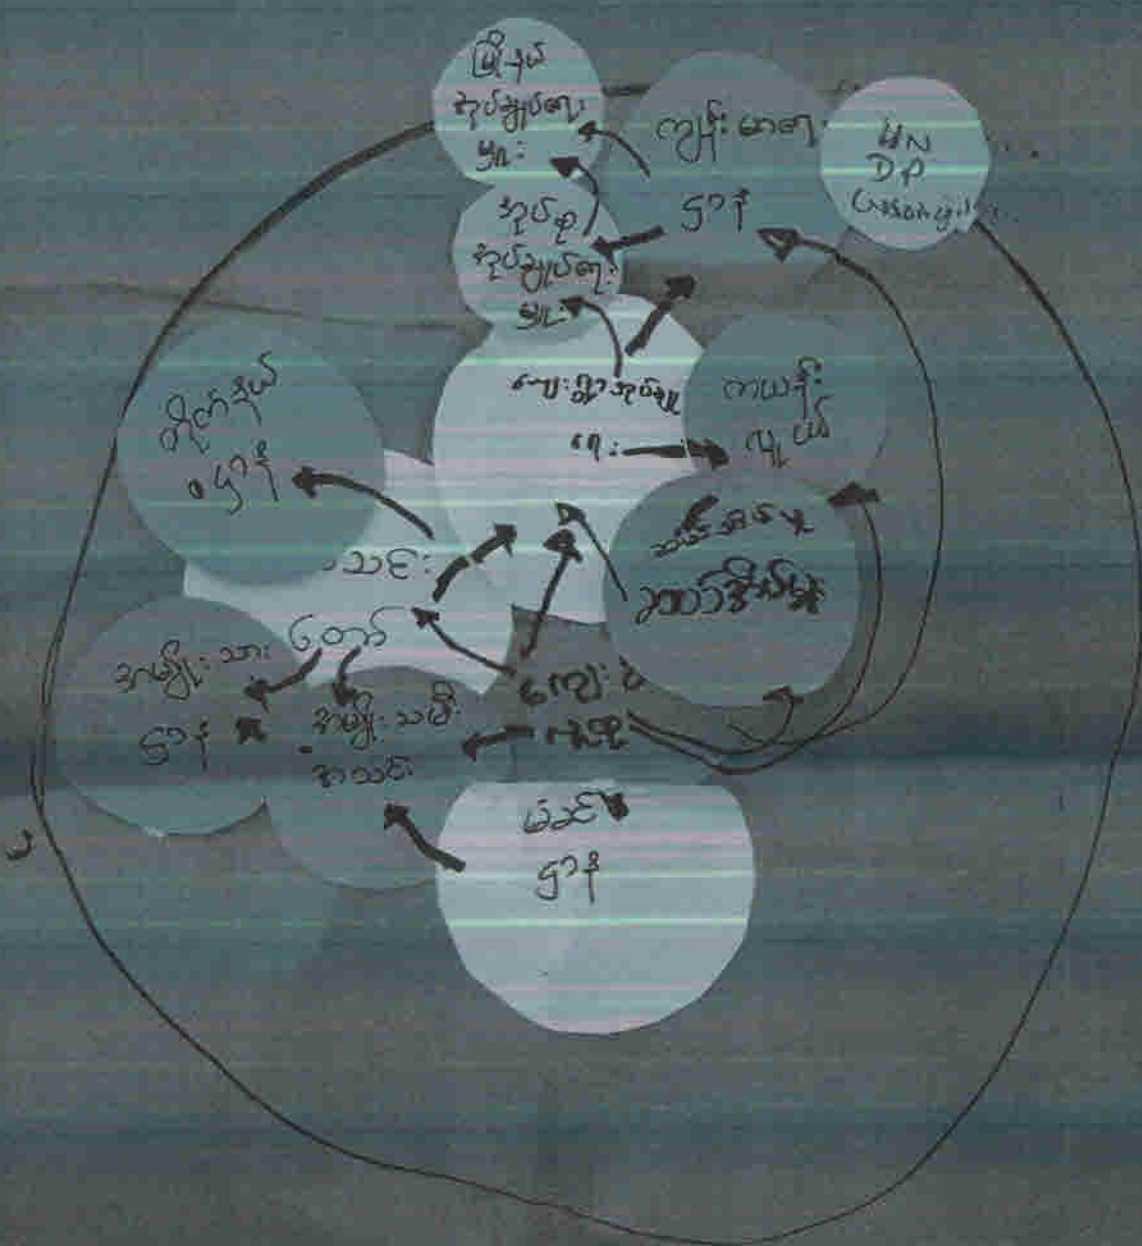 မြို့နယ်
အုပ်ချုပ်ရေး
မှူး
ကျန်းမာရေး
ဌာန
UN
DP
အုပ်စု
အုပ်ချုပ်ရေး
မှူး
ကျေးရွာအုပ်ချုပ်
ရေး
ကယန်း
လူငယ်
တိုက်နယ်
ဌာန
အသင်း
တော်
အမျိုးသား
ဌာန
အမျိုးသမီး
အသင်း
ကျေးရွာ
လူထု
မိခင်
ဌာန